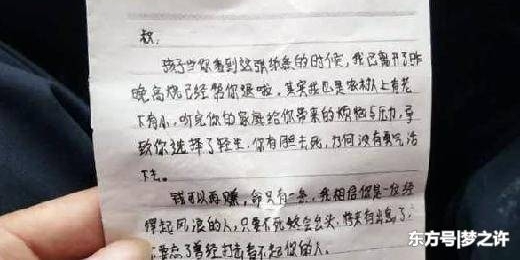 叔,
孩子当你看到这张纸条的时候,我已离开了昨
晚高烧已经帮你退啦,其实我也是农村人上有老
下有小,听完你的家庭给你带来的烦恼与压力,导
致你选择了轻生,你有胆去死,乃何没有勇气活
下去。
钱可以再赚,命只有一条,我相信你是一位经
得起风浪的人,只要不死终会出头,将来有出息了,
忘了曾经打击看不起你的人。
东方号|梦之许